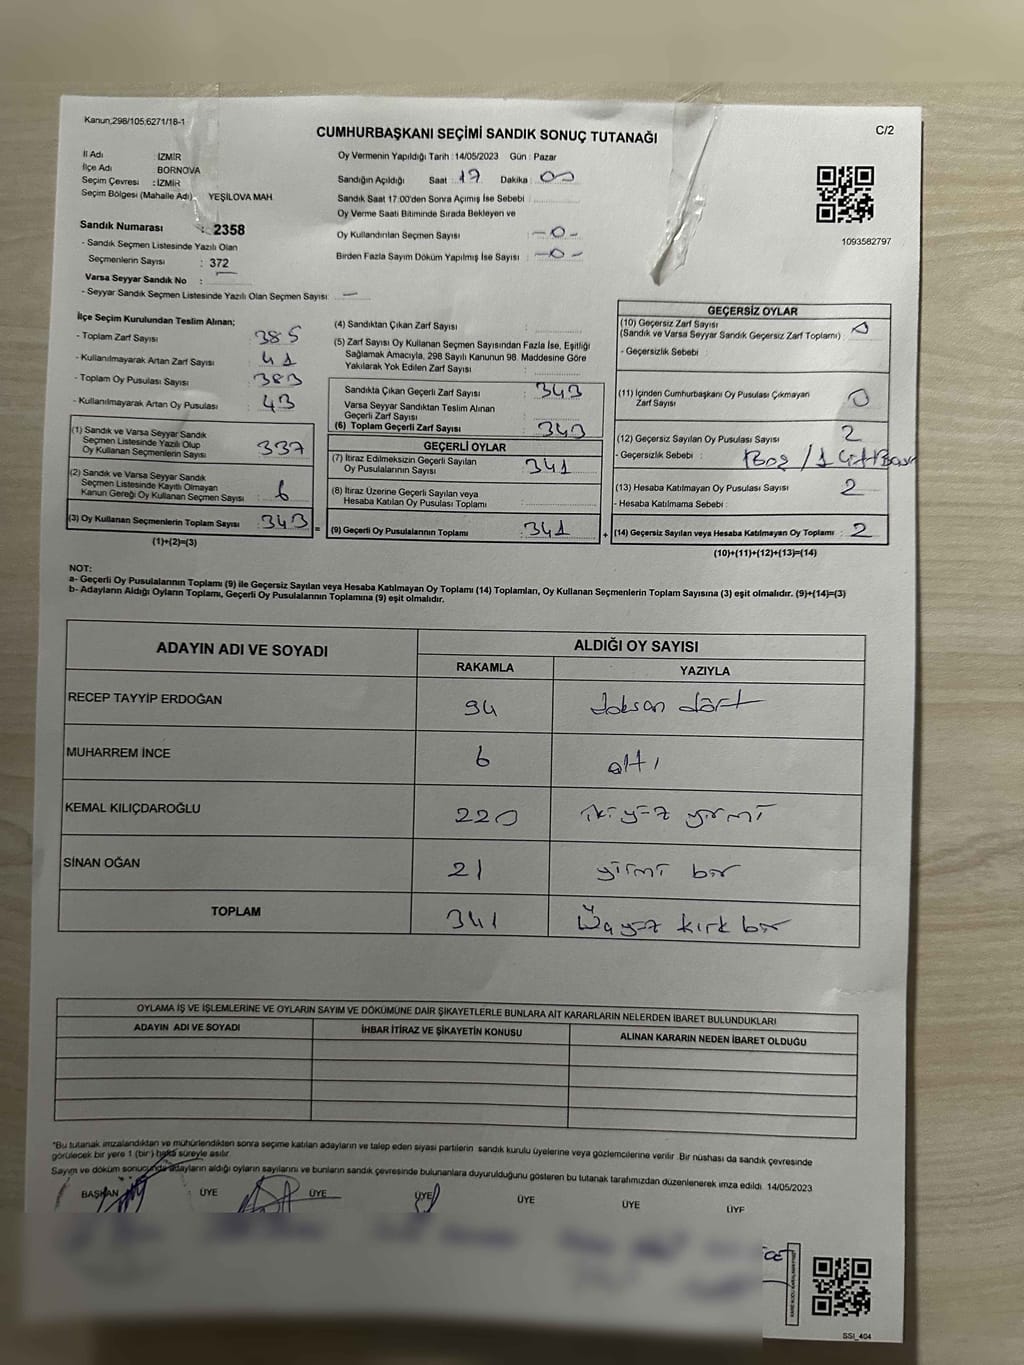 Kanun;298/105;6271/18-1
CUMHURBAŞKANI SEÇİMİ SANDIK SONUÇ TUTANAĞI
C/2
İl Adı : İZMİR
İlçe Adı : BORNOVA
Seçim Çevresi : İZMİR
Seçim Bölgesi (Mahalle Adı) YEŞİLOVA MAH
Sandık Numarası : 2358
- Sandık Seçmen Listesinde Yazılı Olan
Seçmenlerin Sayısı : 372
Varsa Seyyar Sandık No :
- Seyyar Sandık Seçmen Listesinde Yazılı Olan Seçmen Sayısı: —
Oy Vermenin Yapıldığı Tarih : 14/05/2023 Gün : Pazar
Sandığın Açıldığı Saat : 17 Dakika : 00
Sandık Saat 17:00'den Sonra Açımış İse Sebebi :
Oy Verme Saati Bitiminde Sırada Bekleyen ve
Oy Kullandırılan Seçmen Sayısı : -0-
Birden Fazla Sayım Döküm Yapılmış İse Sayısı : -0-
1093582797
İlçe Seçim Kurulundan Teslim Alınan;
- Toplam Zarf Sayısı : 385
- Kullanılmayarak Artan Zarf Sayısı : 41
- Toplam Oy Pusulası Sayısı : 383
- Kullanılmayarak Artan Oy Pusulası : 43
(1) Sandık ve Varsa Seyyar Sandık
Seçmen Listesinde Yazılı Olup
Oy Kullanan Seçmenlerin Sayısı : 337
(2) Sandık ve Varsa Seyyar Sandık
Seçmen Listesinde Kayıtlı Olmayan
Kanun Gereği Oy Kullanan Seçmen Sayısı : 6
(3) Oy Kullanan Seçmenlerin Toplam Sayısı : 343
(1)+(2)=(3)
=
(4) Sandıktan Çıkan Zarf Sayısı :
(5) Zarf Sayısı Oy Kullanan Seçmen Sayısından Fazla İse, Eşitliği
Sağlamak Amacıyla, 298 Sayılı Kanunun 98. Maddesine Göre
Yakılarak Yok Edilen Zarf Sayısı :
Sandıkta Çıkan Geçerli Zarf Sayısı : 343
Varsa Seyyar Sandıktan Teslim Alınan
Geçerli Zarf Sayısı :
(6) Toplam Geçerli Zarf Sayısı : 343
GEÇERLİ OYLAR
(7) İtiraz Edilmeksizin Geçerli Sayılan
Oy Pusulalarının Sayısı : 341
(8) İtiraz Üzerine Geçerli Sayılan veya
Hesaba Katılan Oy Pusulası Toplamı :
(9) Geçerli Oy Pusulalarının Toplamı : 341
+
GEÇERSİZ OYLAR
(10) Geçersiz Zarf Sayısı
(Sandık ve Varsa Seyyar Sandık Geçersiz Zarf Toplamı) : 0
- Geçersizlik Sebebi :
(11) İçinden Cumhurbaşkanı Oy Pusulası Çıkmayan
Zarf Sayısı : 0
(12) Geçersiz Sayılan Oy Pusulası Sayısı : 2
- Geçersizlik Sebebi : Boş / 1
(13) Hesaba Katılmayan Oy Pusulası Sayısı : 2
- Hesaba Katılmama Sebebi :
(14) Geçersiz Sayılan veya Hesaba Katılmayan Oy Toplamı : 2
(10)+(11)+(12)+(13)=(14)
NOT:
a- Geçerli Oy Pusulalarının Toplamı (9) ile Geçersiz Sayılan veya Hesaba Katılmayan Oy Toplamı (14) Toplamları, Oy Kullanan Seçmenlerin Toplam Sayısına (3) eşit olmalıdır. (9)+(14)=(3)
b- Adayların Aldığı Oyların Toplamı, Geçerli Oy Pusulalarının Toplamına (9) eşit olmalıdır.
ADAYIN ADI VE SOYADI ALDIĞI OY SAYISI
RAKAMLA YAZIYLA
RECEP TAYYİP ERDOĞAN 94 doksan dört
MUHARREM İNCE 6 altı
KEMAL KILIÇDAROĞLU 220 iki yüz yirmi
SİNAN OĞAN 21 yirmi bir
TOPLAM 341 Üçyüz kırk bir
OYLAMA İŞ VE İŞLEMLERİNE VE OYLARIN SAYIM VE DÖKÜMÜNE DAİR ŞİKAYETLERLE BUNLARA AİT KARARLARIN NELERDEN İBARET BULUNDUKLARI
ADAYIN ADI VE SOYADI İHBAR İTİRAZ VE ŞİKAYETİN KONUSU ALINAN KARARIN NEDEN İBARET OLDUĞU
*Bu tutanak imzalandıktan ve mühürlendikten sonra seçime katılan adayların ve talep eden siyasi partilerin sandık kurulu üyelerine veya gözlemcilerine verilir .Bir nüshası da sandık çevresinde
görülecek bir yere 1 (bir) hafta süreyle asılır.
Sayım ve döküm sonucunda adayların aldığı oyların sayılarını ve bunların sandık çevresinde bulunanlara duyurulduğunu gösteren bu tutanak tarafımızdan düzenlenerek imza edildi. 14/05/2023
BAŞKAN ÜYE ÜYE ÜYE ÜYE ÜYE ÜYE
SSI_404